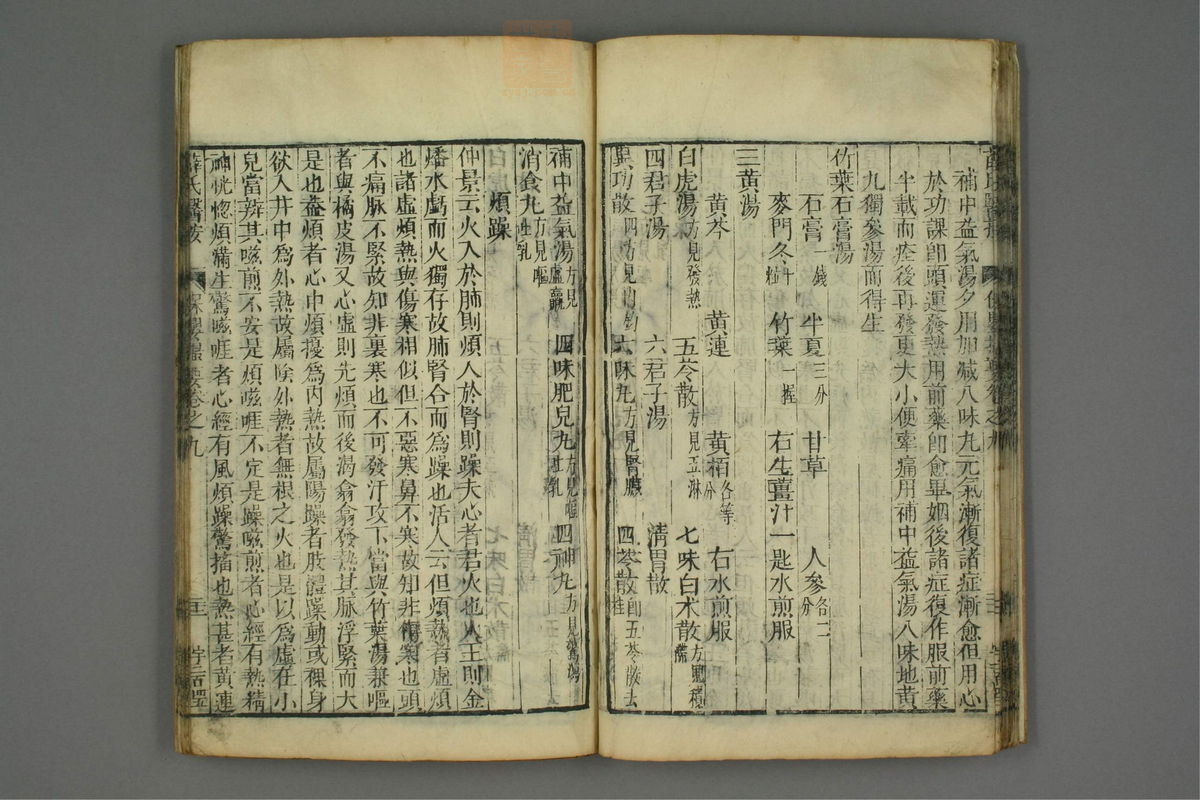 補中益氣湯夕用加減八味丸元氣漸復諸症漸愈但用心
於功課卽頭運發熱用前藥卽愈畢姻後諸症復作服前藥
半載而痊後再發更大小便牽痛用補中益氣湯八味地黃
丸獨參湯而得生
竹葉石膏湯
石膏一錢 半夏三分 甘草 人參各二分
麥門冬十粒 竹葉一握 右生薑汁一匙水煎服
三黃湯
黃芩 黃連 黃栢各等分 右水煎服
白虎湯方見發熱 五苓散方見五淋 七味白朮散方見積滯
四君子湯 六君子湯 淸胃散
異功散四方見 六味丸方見腎臟 四苓散卽五苓散去桂
補中益氣湯方見虛羸 四味肥兒丸方見嘔吐乳 四神丸方見
消食丸方見嘔吐乳
煩躁
仲景云火入於肺則煩入於腎則躁夫心者君火也火王則金
燔水虧而火獨存故肺腎合而爲躁也活人云但煩熱者虛煩
也諸虛煩熱與傷寒相似但不惡寒鼻不寒故知非傷寒也頭
不痛脉不緊故知非裏寒也不可發汗攻下當與竹葉湯兼嘔
者與橘皮湯又心虛則先煩而後渴翕翕發熱其脉浮緊而大
是也葢煩者心中煩擾爲內熱故屬陽躁者肢體躁動或裸身
欲入井中爲外熱故屬陰外熱者無根之火也是以爲虛在小
兒當辨其啼煎不安是煩嗞啀不定是躁嗞煎者心經有熱精
神恍惚煩滿生驚嗞啀者心經有風煩躁驚搐也熱甚者黃連
薛氏醫按 保嬰撮要卷之九